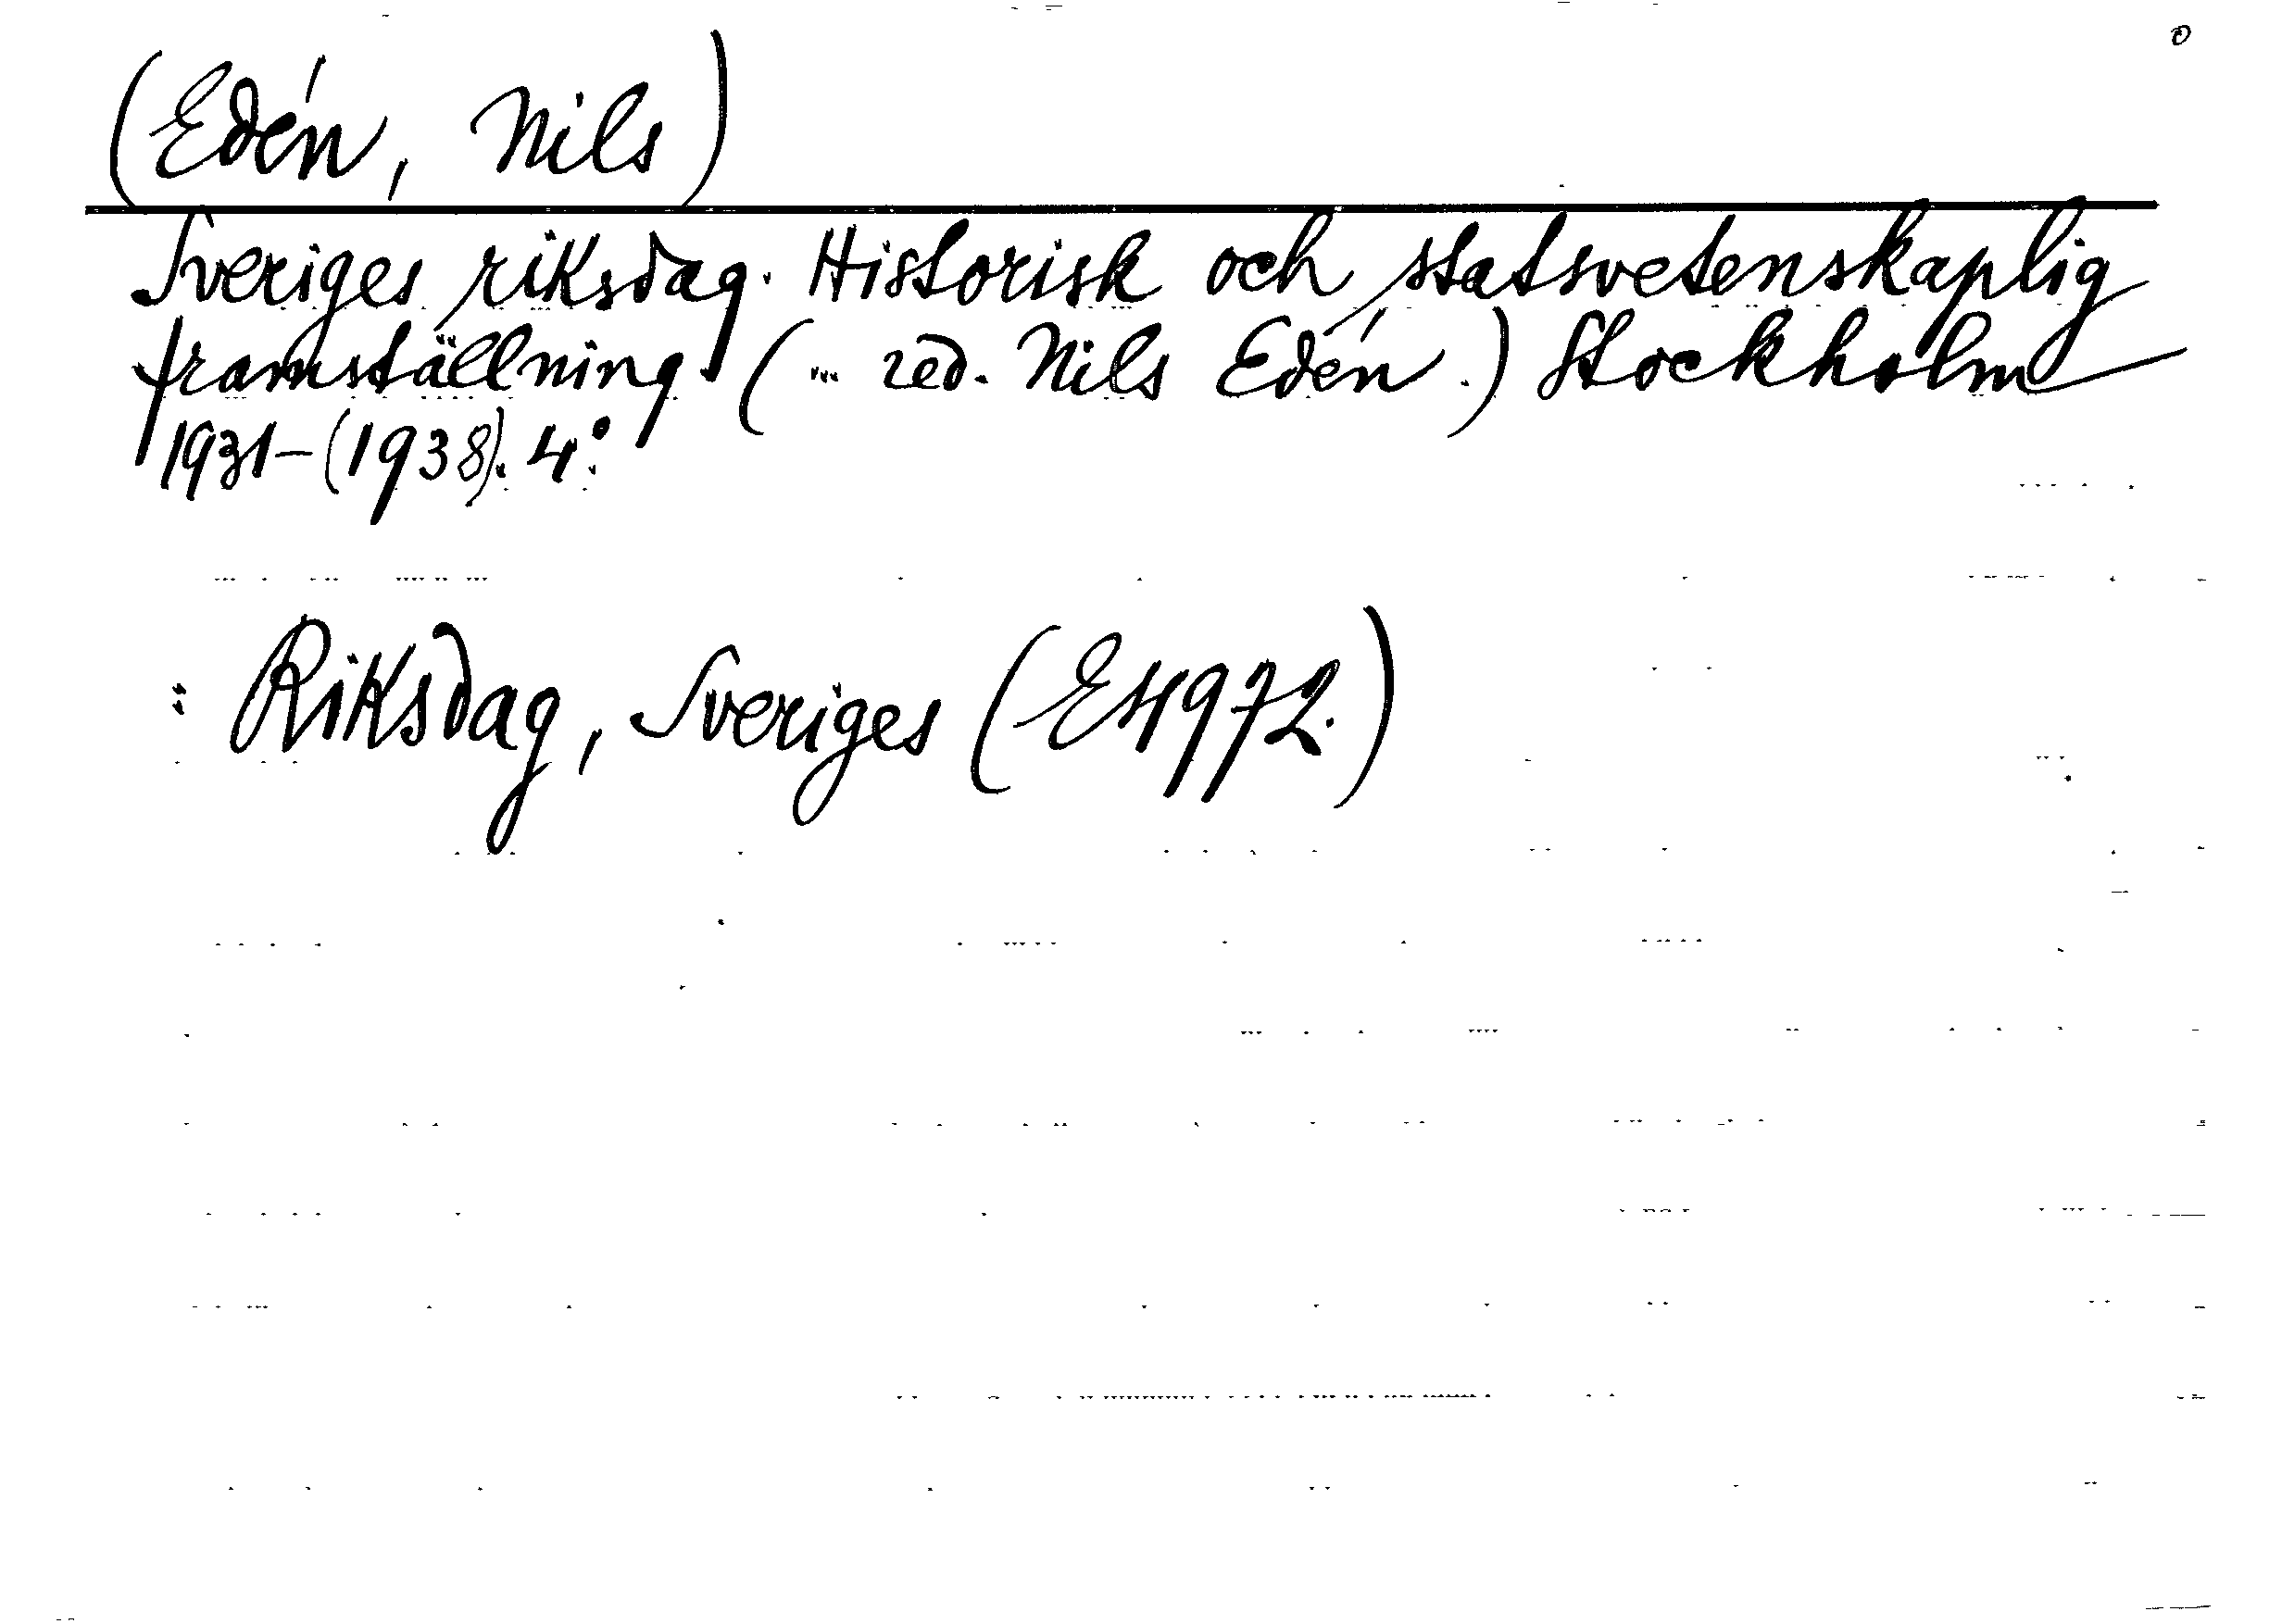 (Edén, Nils)
Sveriges riksdag. Historisk och statsvetenskaplig
framställning (... red. Nils Edén.) Stockholm
1931-(1938). 4:o
: Riksdag, Sveriges (E4972.)